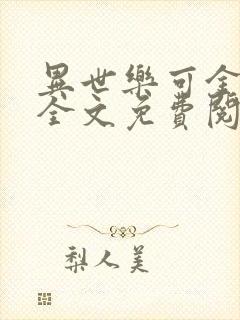 異世樂可全
全文免費閱
梨人美